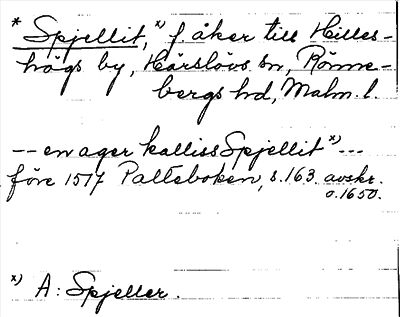 * Spjellit, x) f. åker till Hilles-
högs by, Härslövs sn, Rönne-
bergs hd, Malm. l.
-- en ager kalliss Spjellit x) ---
före 1517 Palteboken, s. 163. avskr.
o. 1650.
x) A: Spjeller.